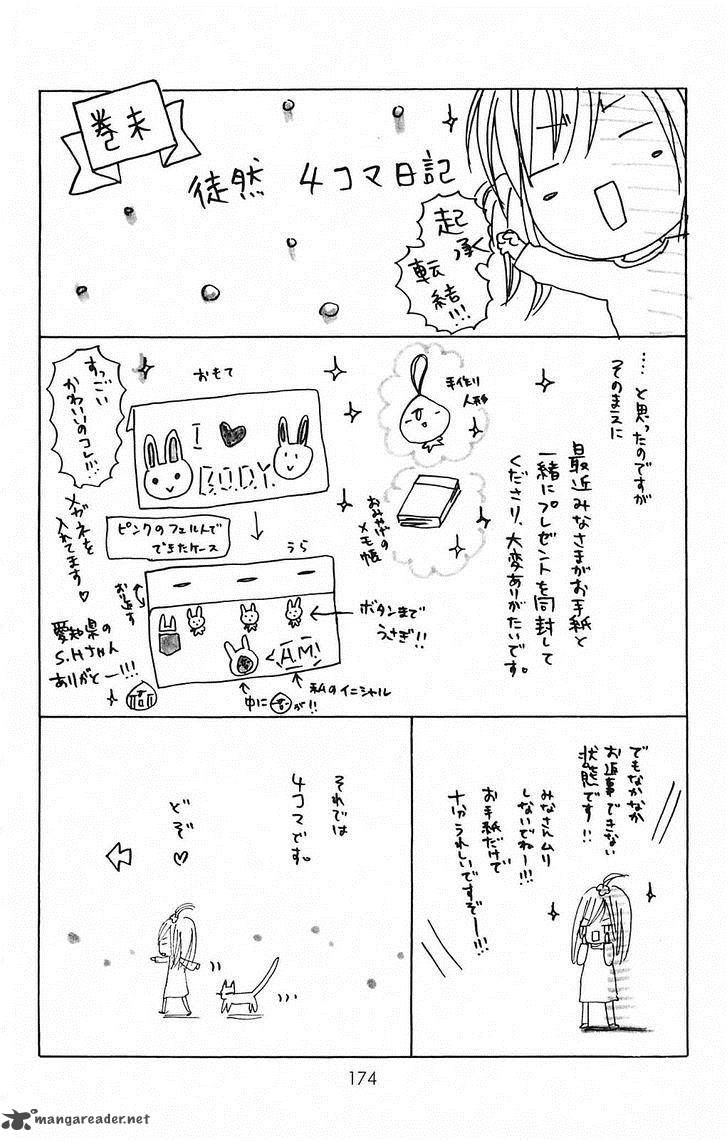 巻末
徒然 4コマ日記
起
承
転
結!!!
…と思ったのですが
そのまえに
最近みなさまがお手紙と
一緒にプレゼントを同封して
くださり、大変ありがたいです。
手作り
人形
おみやげの
メモ帳
おもて
すっごい
かわいいのコレ!!!
I ♥
B.O.D.Y.
ピンクのフェルトで
できたケース
メガネを
入れてます♡
うら
お返す
ボタンまで
うさぎ!!
AM!
私のイニシャル
中に
が!!
愛知県の
S.Hちゃん
ありがとー!!!
でもなかなか
お返事できない
状態です!!
みなさんムリ
しないでねー!!!
お手紙だけで
十分うれしいですぞー!!!
それでは
4コマです。
どぞ♡
174
mangareader.net